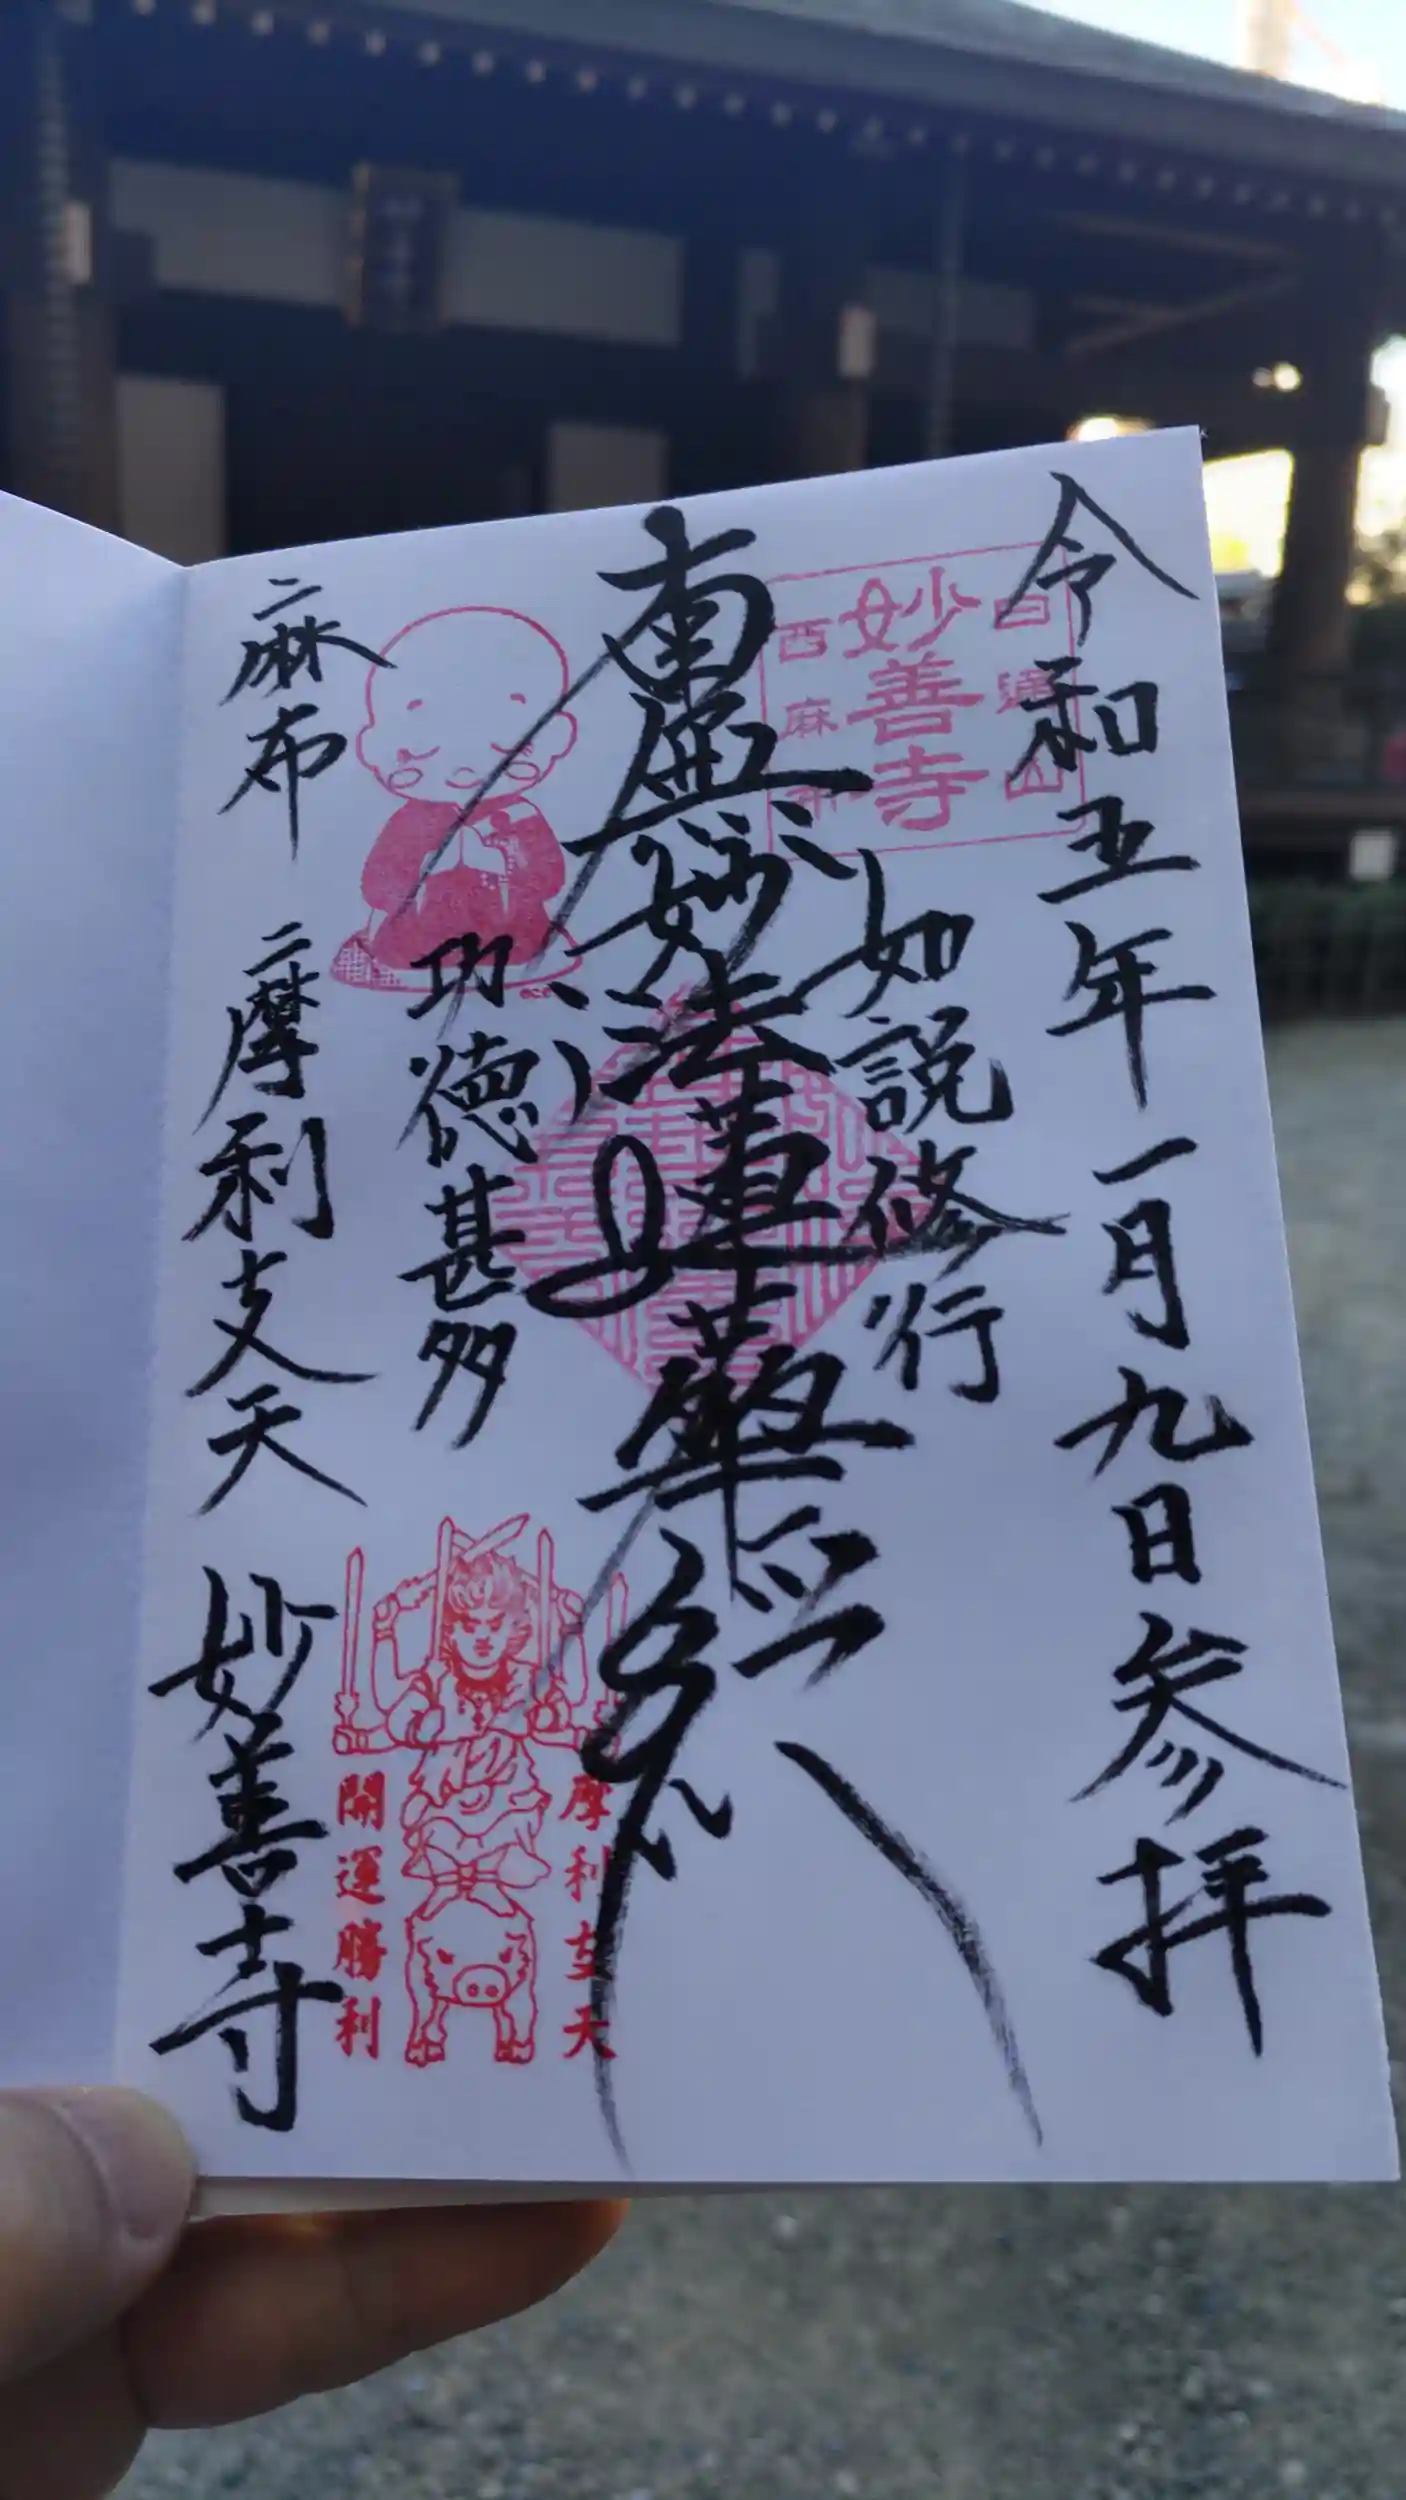 令和五年一月九日参拝
如説修行
南無妙法蓮華経
功徳甚多
麻布 摩利支天 妙善寺
妙善寺
西麻布
摩利支天
開運勝利